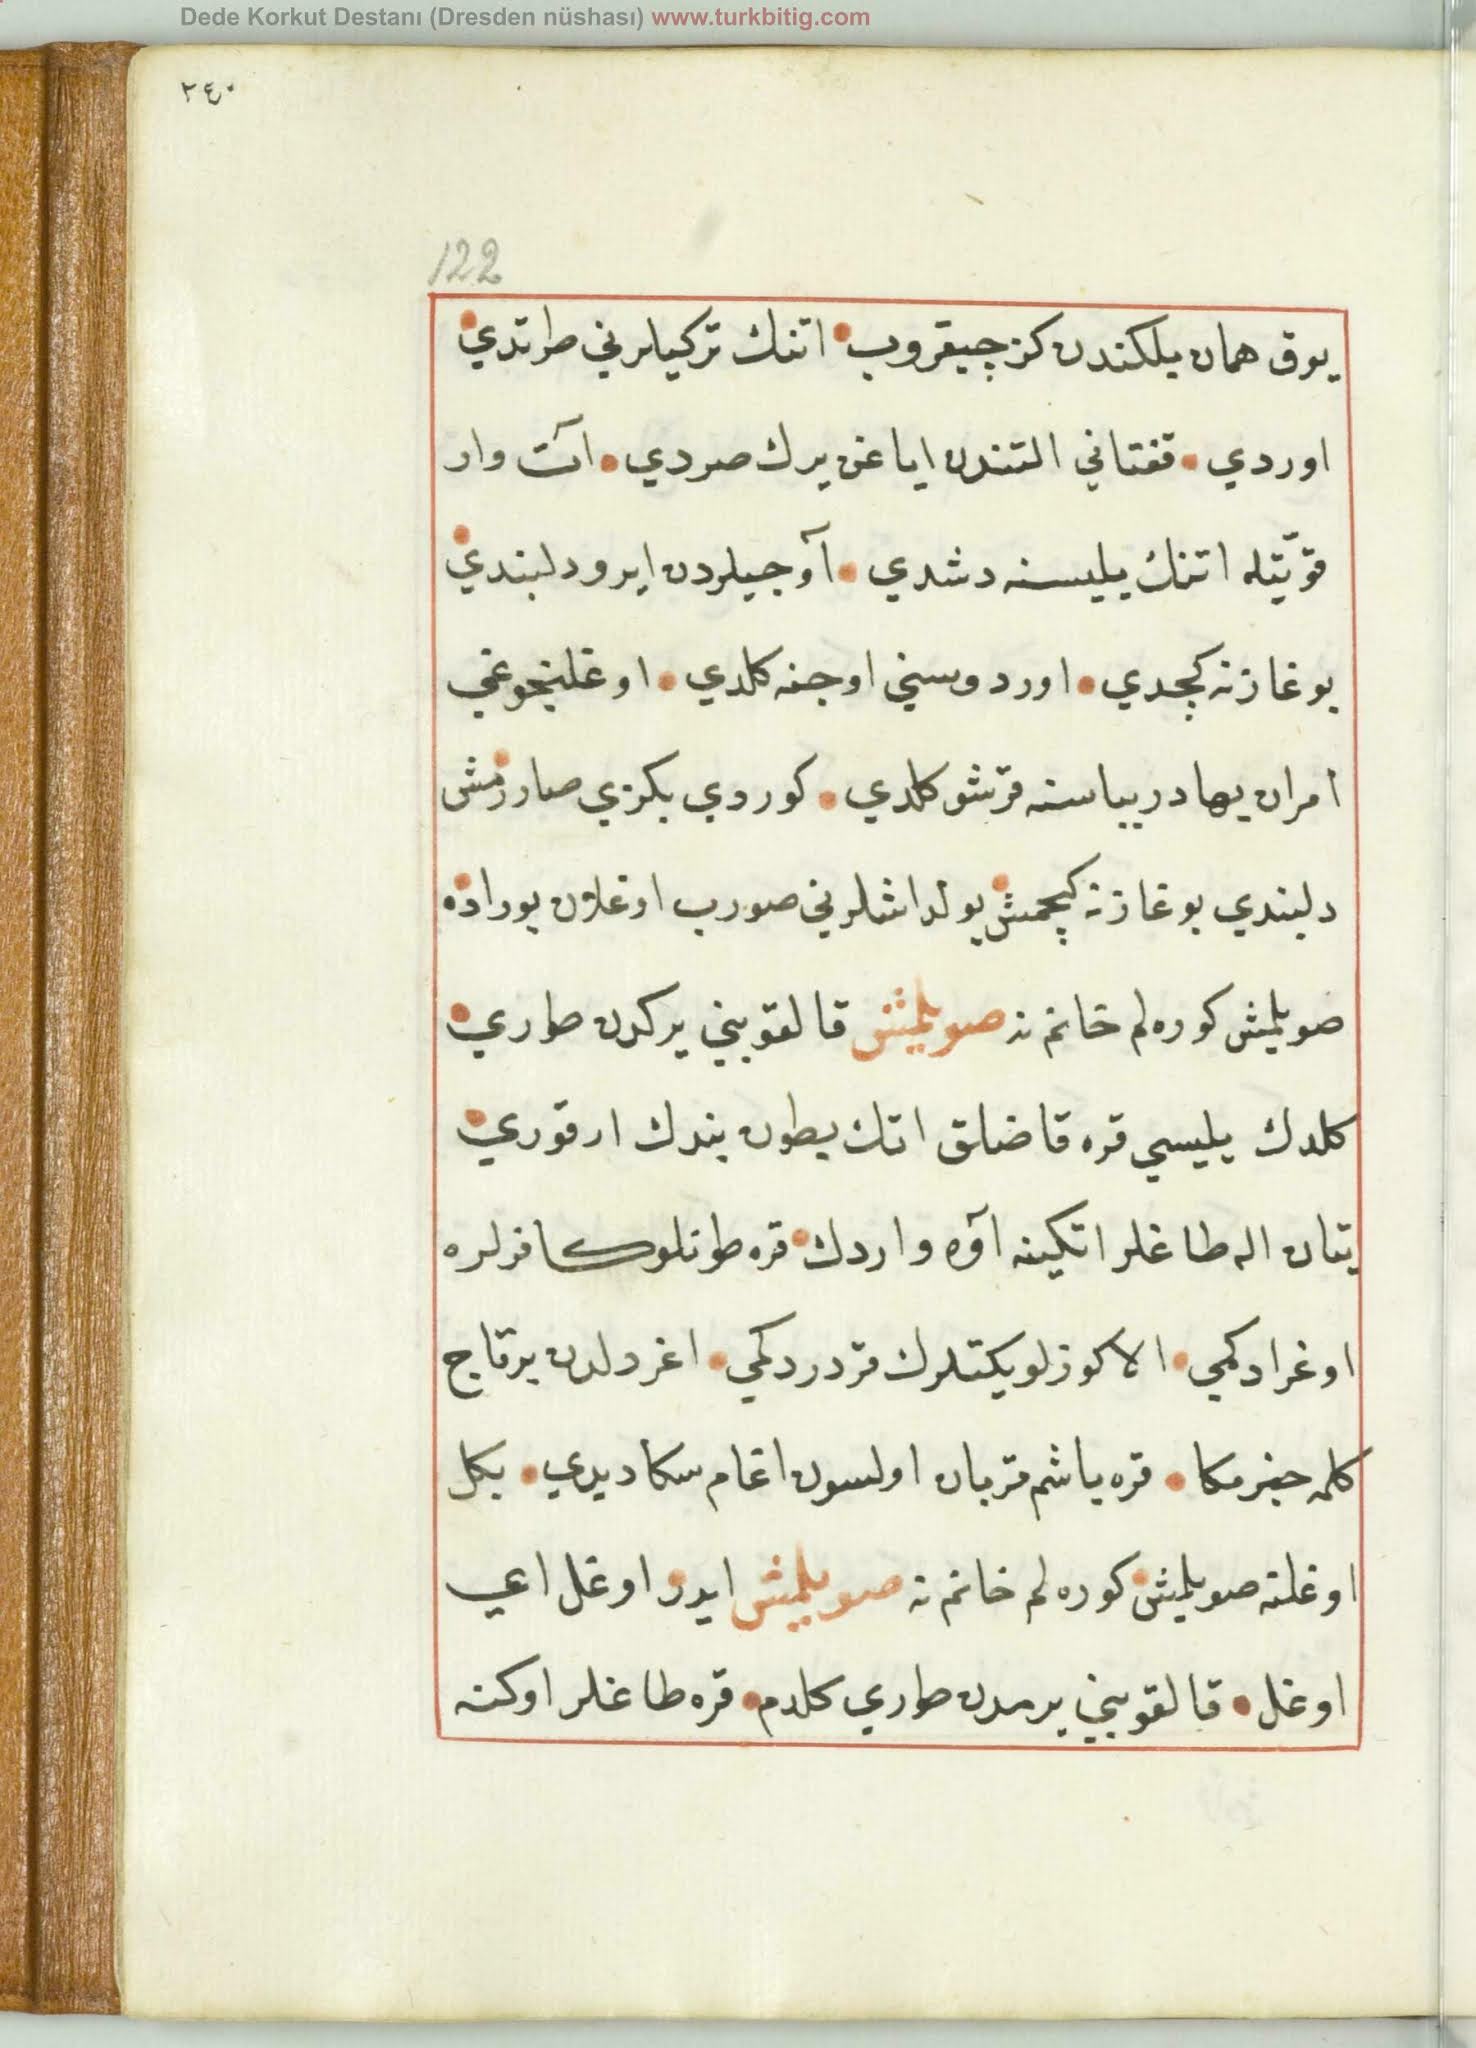 Dede Korkut Destanı (Dresden nüshası) www.turkbitig.com
٢٤٠
122
يوق همان بلكندن كز چيقروب اتنك تركيلرني طرتدي
اوردي قفتاني التندن اياغن يرك صردي ات وار
قوّتله اتنك يليسنه دشدي آوجيلردن ايرو دلبندي
بوغازنه كچدي اوردوسني اوجنه كلدي اوغلنجوغي
امران بهادر بباسنه قرشو كلدي كوردي بكزي صارزمش
دلبندي بوغازنه كچمش يولداشلرني صورب اوغلان بوراده
صويلمش كوره لم خانم نه صويلمش قالقوبني يركدن طوري
كلدك يليسي قره قاضلق اتك بطون بندك ارقوري
يتان اله طاغلر اتكينه آوه واردك قره طونلو كافرلره
اوغرادكمي الا كوزلو يكتلرك قردردكمي اغر دلدن برقاج
كلمه خبر مكا قره باشم قربان اولسون اغام سكا ديدي بكل
اوغلنه صويلمش كوره لم خانم نه صويلمش ايدر اوغل اعي
اوغل قالقوبني يرمدن طوري كلدم قره طاغلر اوكنه